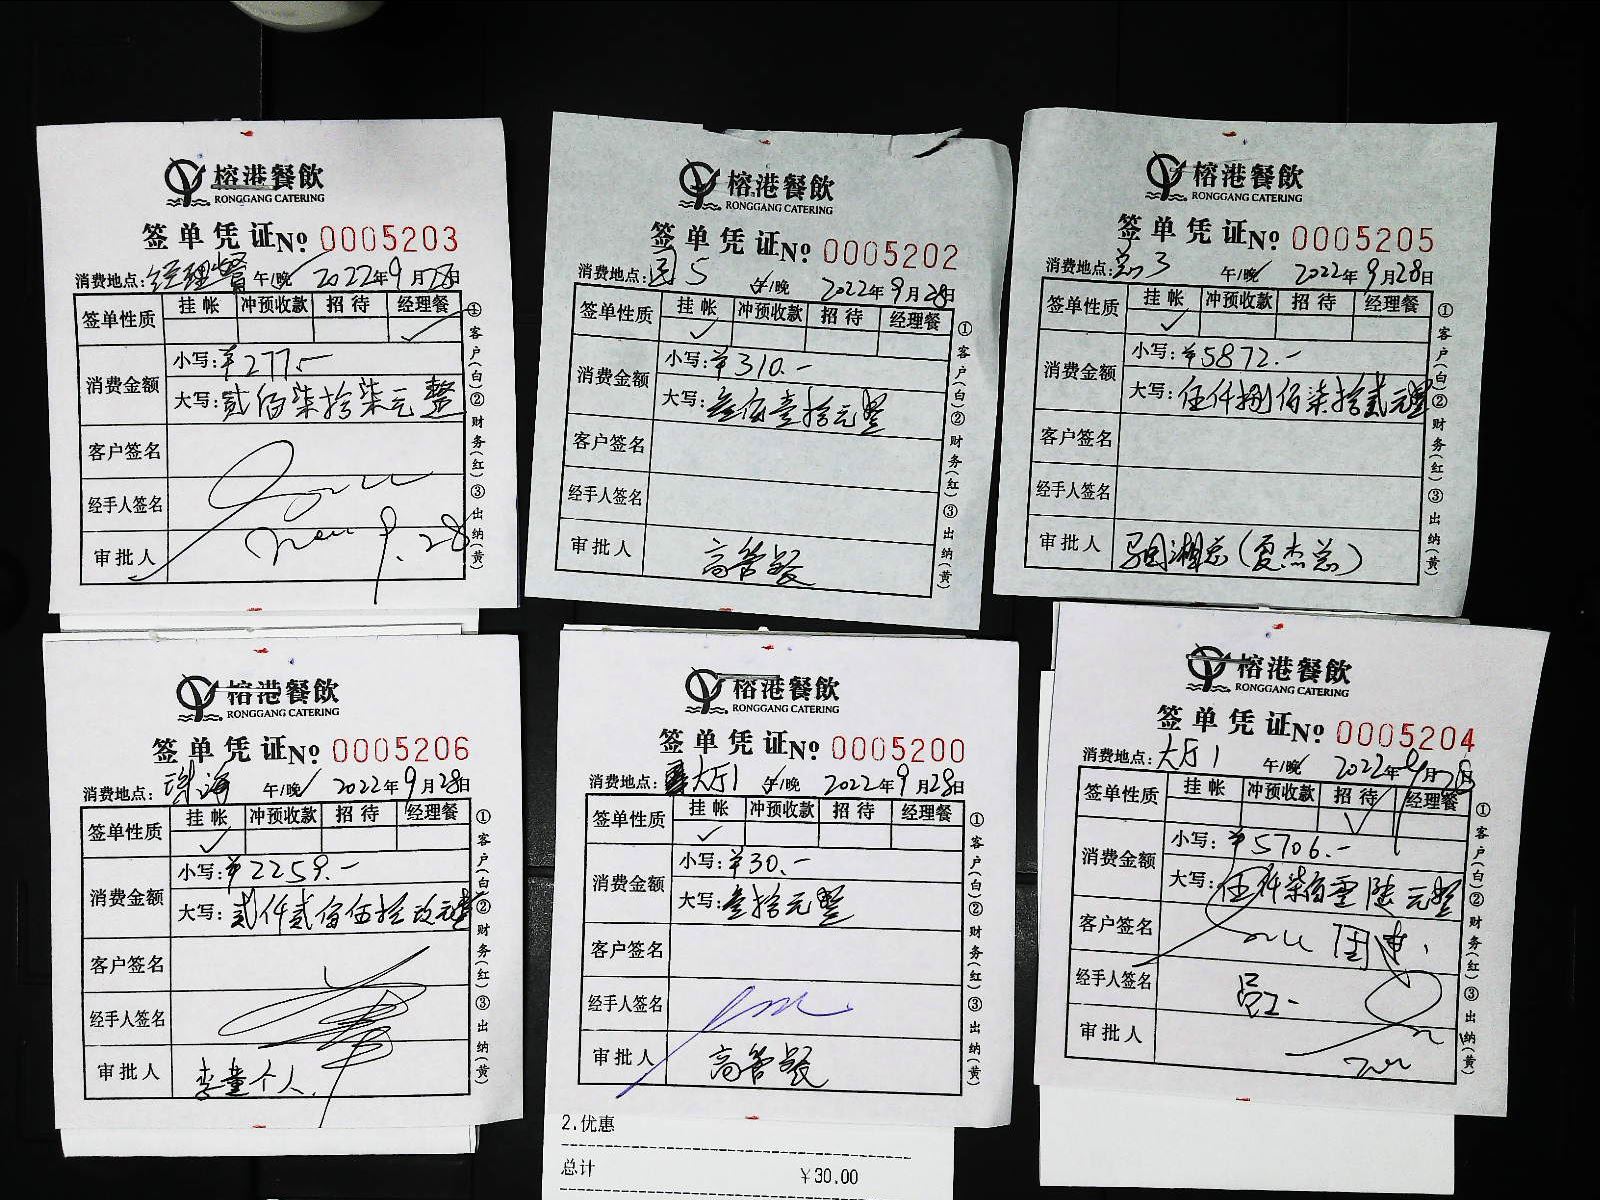 榕港餐飲
RONGGANG CATERING
签单凭证№ 0005203
消费地点: 经理餐 午/晚 2022年9月28日
签单性质 挂帐 冲预收款 招待 经理餐
✓
消费金额 小写:¥277.-
大写:贰佰柒拾柒元整
客户签名
经手人签名
审批人 9.28
①客户(白)②财务(红)③出纳(黄)
榕港餐飲
RONGGANG CATERING
签单凭证№ 0005202
消费地点: 5 午/晚 2022年9月28日
签单性质 挂帐 冲预收款 招待 经理餐
✓
消费金额 小写:¥310.-
大写:叁佰壹拾元整
客户签名
经手人签名
审批人 高管餐
①客户(白)②财务(红)③出纳(黄)
榕港餐飲
RONGGANG CATERING
签单凭证№ 0005205
消费地点: 3 午/晚 2022年9月28日
签单性质 挂帐 冲预收款 招待 经理餐
✓
消费金额 小写:¥5872.-
大写:伍仟捌佰柒拾贰元整
客户签名
经手人签名
审批人 湘总(夏杰总)
①客户(白)②财务(红)③出纳(黄)
榕港餐飲
RONGGANG CATERING
签单凭证№ 0005206
消费地点: 珠海 午/晚 2022年9月28日
签单性质 挂帐 冲预收款 招待 经理餐
✓
消费金额 小写:¥2259.-
大写:贰仟贰佰伍拾玖元整
客户签名
经手人签名
审批人 李董个人.
①客户(白)②财务(红)③出纳(黄)
榕港餐飲
RONGGANG CATERING
签单凭证№ 0005200
消费地点: 大厅1 午/晚 2022年9月28日
签单性质 挂帐 冲预收款 招待 经理餐
✓
消费金额 小写:¥30.-
大写:叁拾元整
客户签名
经手人签名
审批人 高管餐
①客户(白)②财务(红)③出纳(黄)
2.优惠
总计 ¥30.00
榕港餐飲
RONGGANG CATERING
签单凭证№ 0005204
消费地点: 大厅1 午/晚 2022年9月28日
签单性质 挂帐 冲预收款 招待 经理餐
✓
消费金额 小写:¥5706.-
大写:伍仟柒佰零陆元整
客户签名
经手人签名
审批人
①客户(白)②财务(红)③出纳(黄)